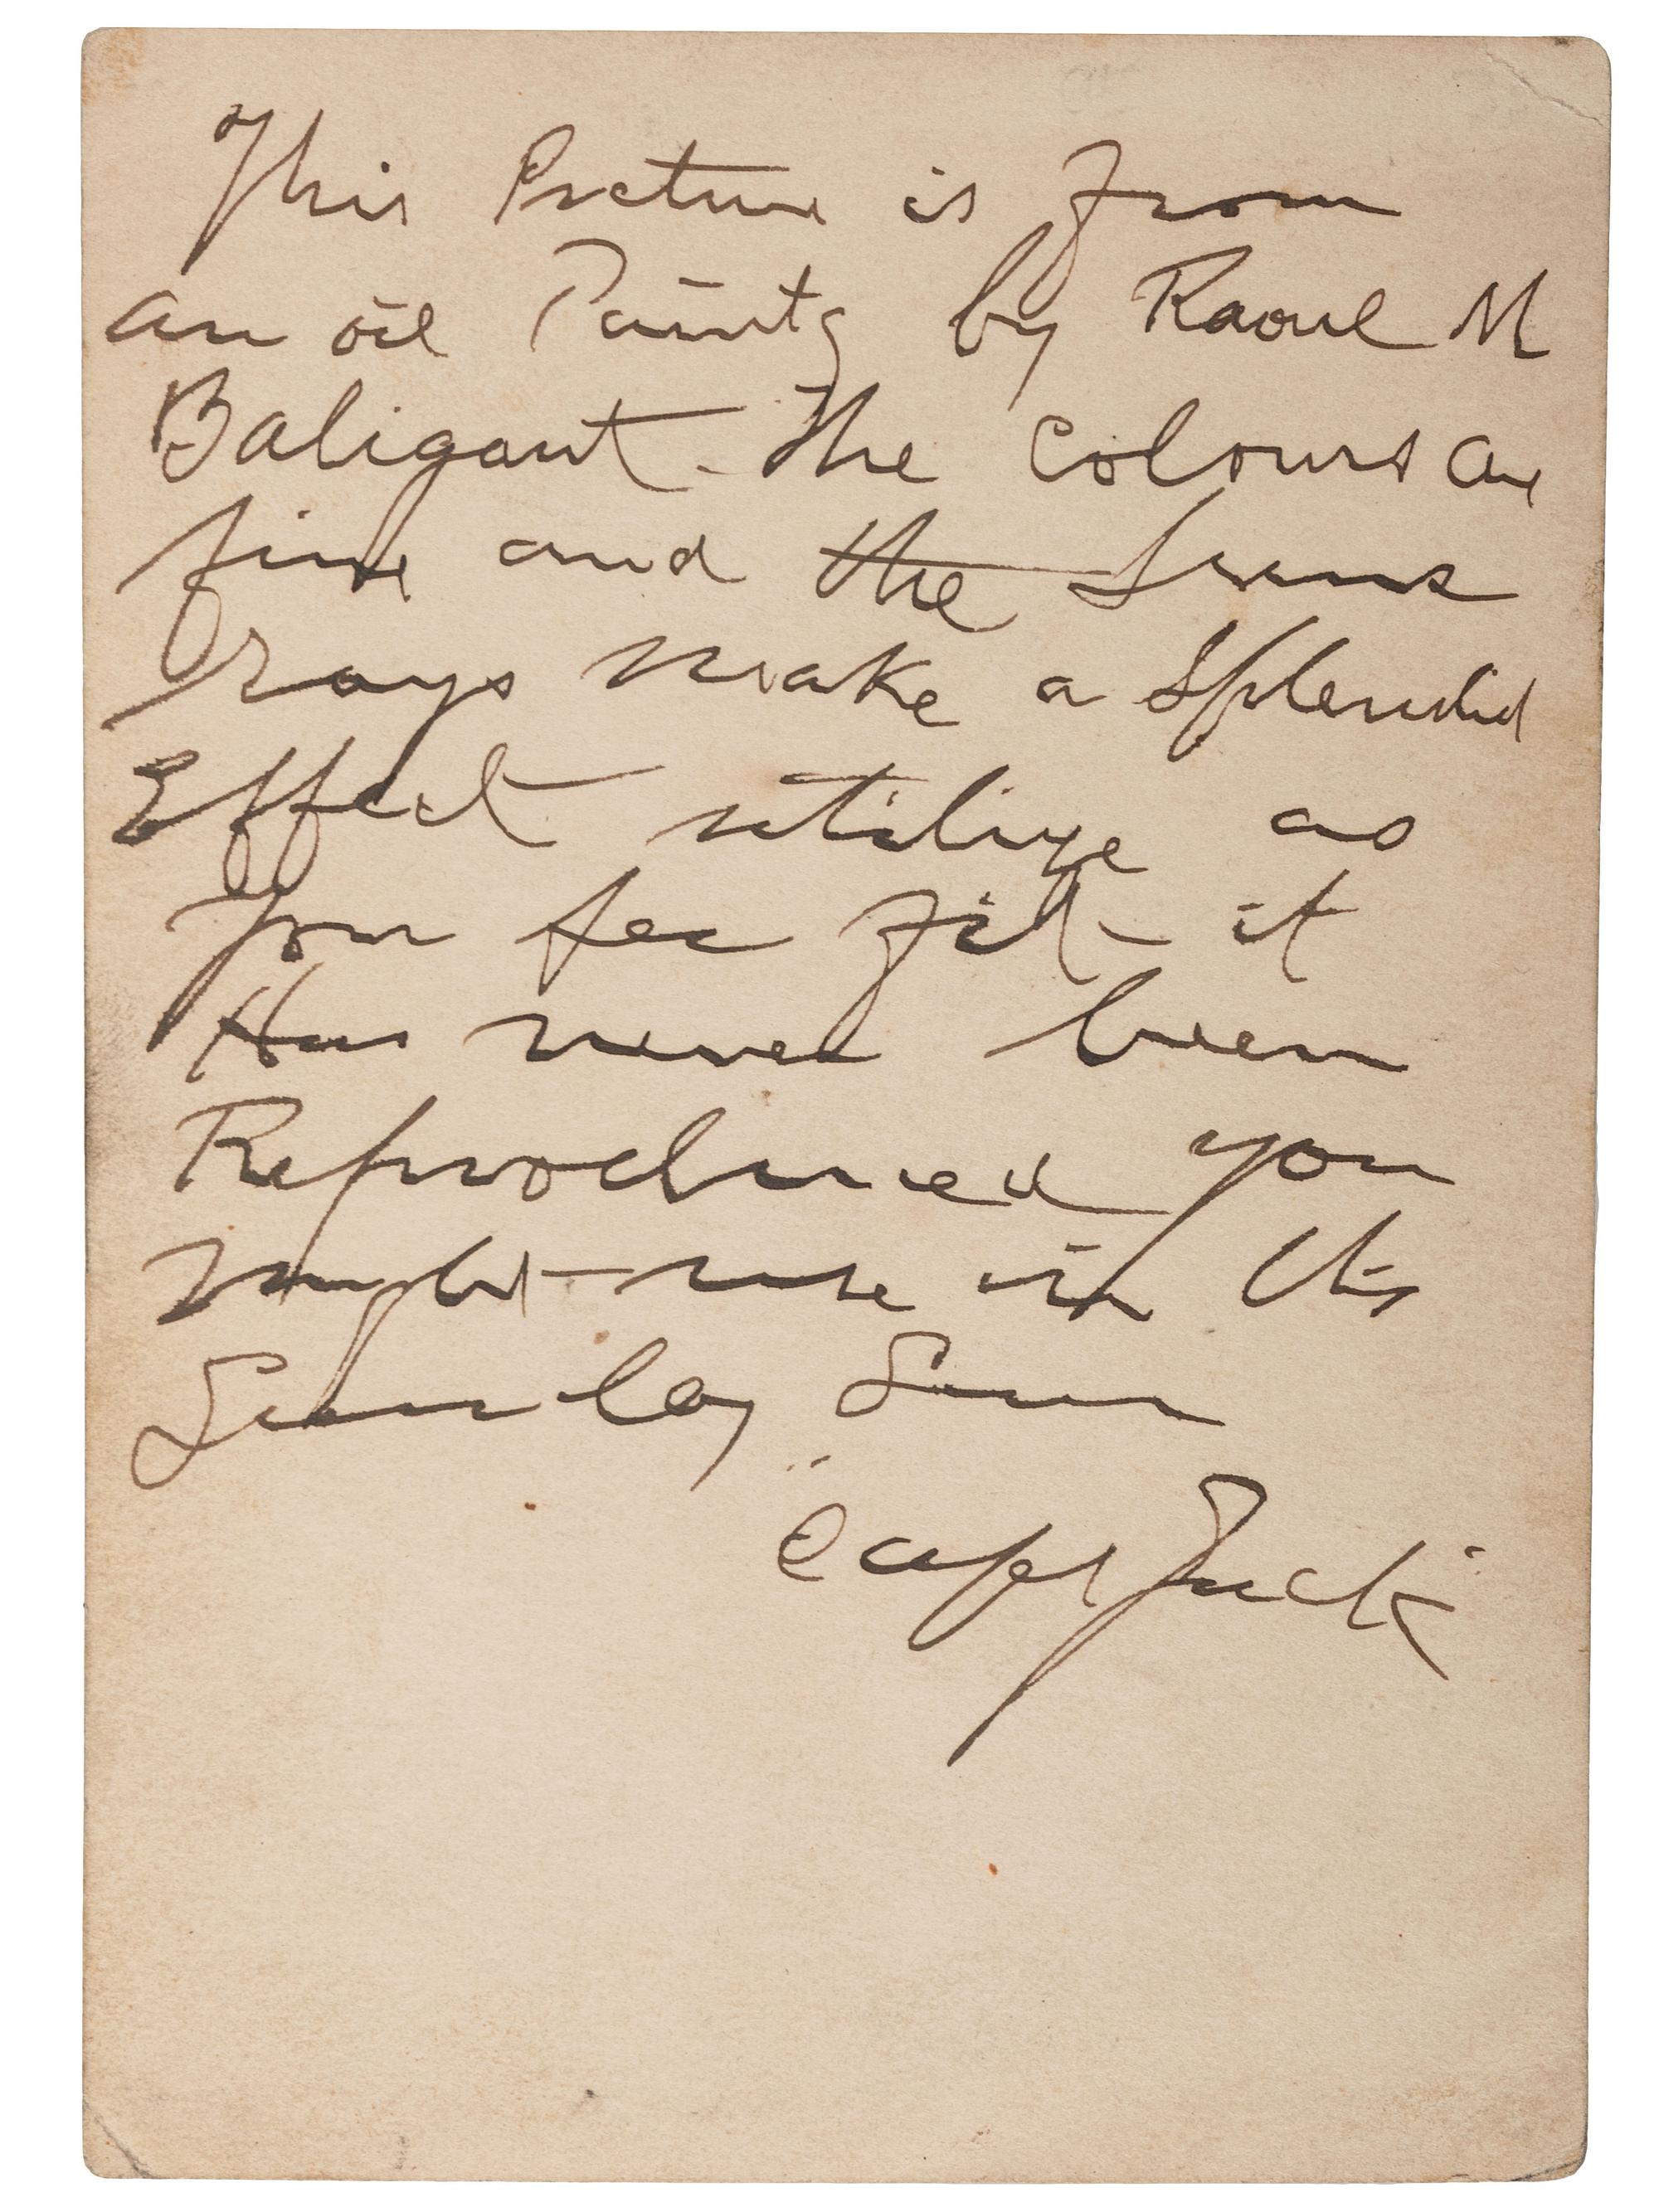 This Picture is from
an oil Paintg by Raoul M
Baligant - The Colours are
fine and the Suns
rays make a Splendid
Effect utilize as
You see fit - it
Has never been
Reproduced you
might use in the
Sunday Sun
Capt Jack